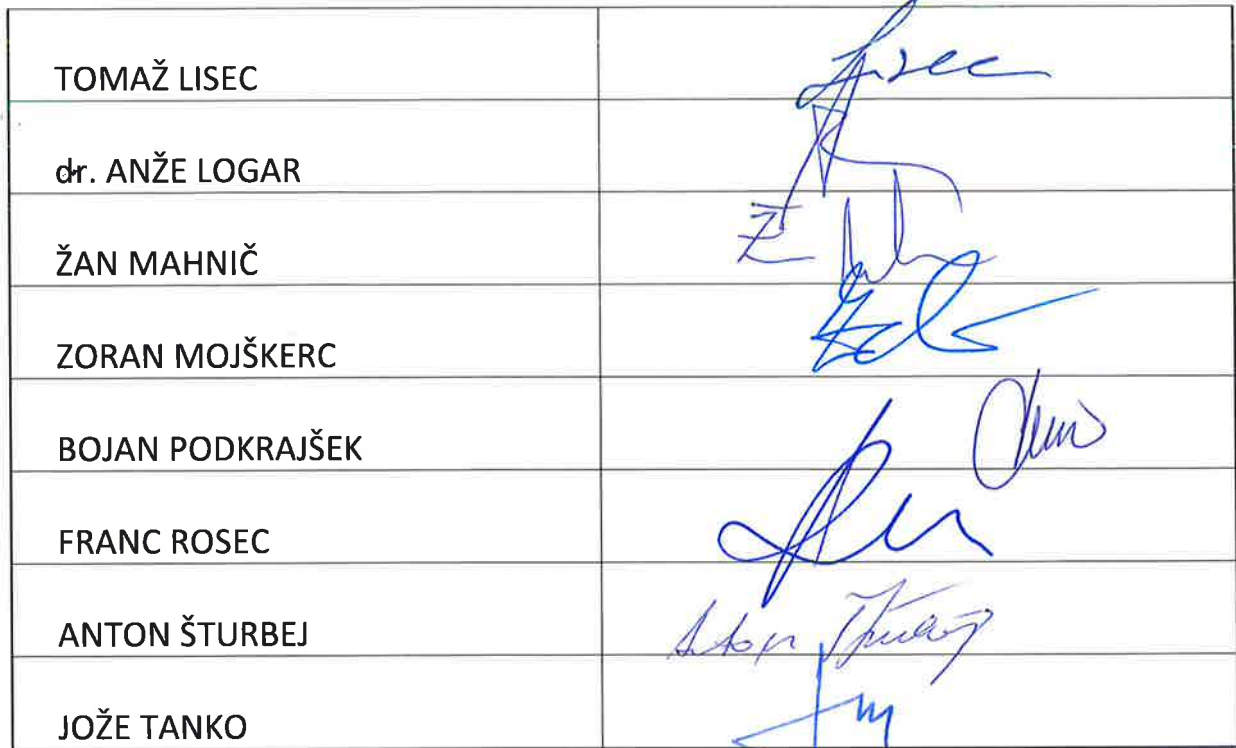 TOMAŽ LISEC Lisec
dr. ANŽE LOGAR
ŽAN MAHNIČ Ž
ZORAN MOJŠKERC
BOJAN PODKRAJŠEK
FRANC ROSEC
ANTON ŠTURBEJ Anton Šturbej
JOŽE TANKO